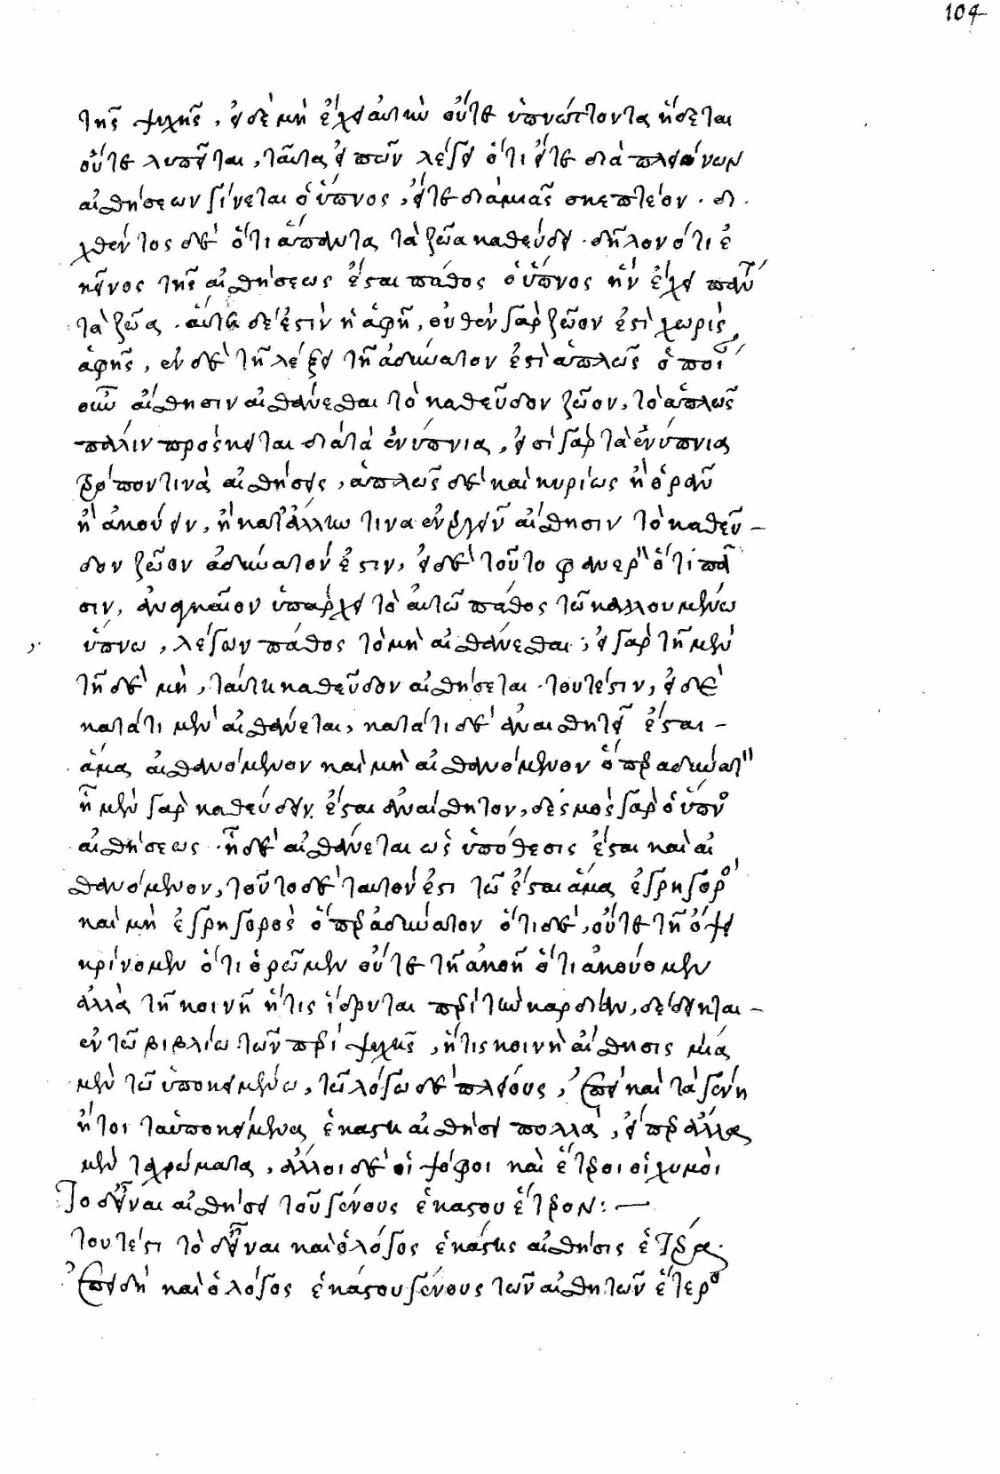 104
τῆς ψυχῆς, εἰ δὲ μὴ ἔχει αὐτὴν οὔτε ὑπνώττοντα ἥσεται
οὔτε λυπεῖται, ταῦτα εἰπὼν λέγει ὅτι εἴτε διὰ πλειόνων
αἰσθήσεων γίνεται ὁ ὕπνος, εἴτε διὰ μιᾶς σκεπτέον. δει
χθέντος δὲ ὅτι ἅπαντα τὰ ζῶα καθεύδει. δῆλον ὅτι ἐ
κείνος τῆς αἰσθήσεως ἔσται πάθος ὁ ὕπνος ἣν ἔχει παντ
τὰ ζῶα. αὕτη δέ ἐστιν ἡ ἁφὴ, οὐθὲν γὰρ ζῶον ἐστὶ χωρὶς
ἁφῆς, ἐν δὲ τῆ λέξει τῆ ἀδύνατον ἐστὶ ἁπλῶς ὁποι
οῦν αἴσθησιν αἰσθάνεσθαι τὸ καθεῦδον ζῶον, τὸ ἁπλῶς
πάλιν πρόσκειται διὰ τὰ ἐνύπνια, εἰσὶ γὰρ τὰ ἐνύπνια
τρόπον τινὰ αἰσθήσεις, ἁπλῶς δὲ καὶ κυρίως ἢ ὁρᾶν
ἢ ἀκούειν, ἢ κατ' ἄλλην τινα ἐνεργεῖν αἴσθησιν τὸ καθεῦ-
δον ζῶον ἀδύνατόν ἐστιν, εἰ δὲ τοῦτο φανερὸν ὅτι πᾶ
σιν, ἀναγκαῖον ὑπάρχει τὸ αὐτῶ πάθος τῶ καλλουμένω
ὕπνω, λέγων πάθος τὸ μὴ αἰσθάνεσθαι, εἰ γὰρ τῆ μὲν
τῆ δὲ μὴ, ταύτη καθεῦδον αἰσθήσεται. τουτέστιν, εἰ δὲ
κατά τι μὲν αἰσθάνεται, κατά τι δὲ ἀναισθητεῖ ἔσται-
ἅμα αἰσθανόμενον καὶ μὴ αἰσθανόμενον ὅπερ ἀδύνατον
ἧ μὲν γὰρ καθεύδειν ἔσται ἀναίσθητον, δεσμὸς γὰρ ὁ ὕπνος
αἰσθήσεως. ἧ δὲ αἰσθάνεται ὡς ὑπόθεσις ἔσται καὶ αἰ
σθανόμενον, τοῦτο δὲ ταυτόν ἐστι τῶ ἔσται ἅμα ἐγρηγορὸς
καὶ μὴ ἐγρηγορὸς ὅπερ ἀδύνατον ὅτι δὲ, οὔτε τῆ ὄψει
κρίνομεν ὅτι ὁρῶμεν οὔτε τῆ ἀκοῆ ὅτι ἀκούομεν
ἀλλὰ τῆ κοινῆ ἥτις ἵδρυται περὶ τὴν καρδίαν, δέδεικται-
ἐν τῶ βιβλίω τῶν περὶ ψυχῆς, ἥτις κοινὴ αἴσθησις μία
μὲν τῶ ὑποκειμένω, τῶ λόγω δὲ πλείους, ἐπεὶ καὶ τὰ γένη
ἤτοι τὰ ὑποκείμενα ἑκάστη αἰσθήσει πολλὰ, εἴπερ ἄλλα
μὲν τὰ χρώματα, ἄλλοι δὲ οἱ ψόφοι καὶ ἕτεροι οἱ χυμοὶ
Τὸ δ' εἶναι αἰσθήσει τοῦ γένους ἑκάστου ἕτερον:—
τουτέστι τὸ εἶναι καὶ ὁ λόγος ἑκάστης αἰσθήσις ἑτέρα.
Ἐπειδὴ καὶ ὁ λόγος ἑκάστου γένους τῶν αἰσθητῶν ἕτερος